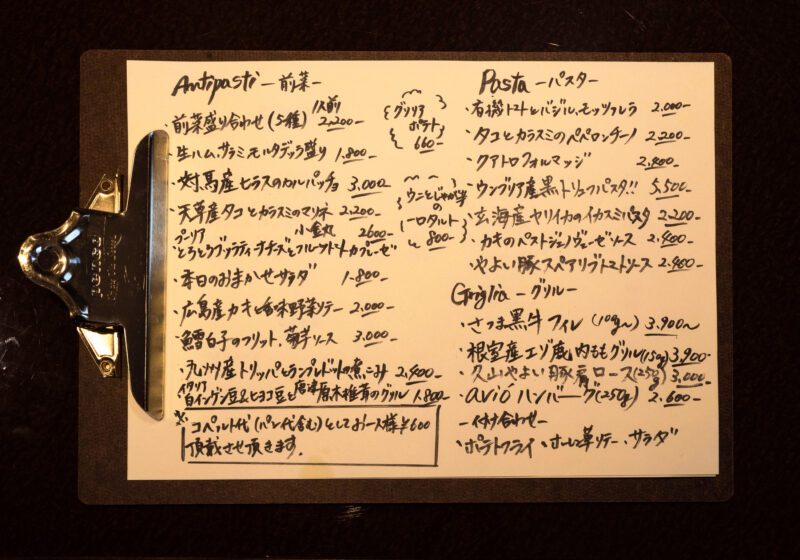 Antipasti －前菜－
1人前
・前菜盛り合わせ(5種) 2,200-
・生ハム、サラミ、モルタデッラ盛り 1,800-
・対馬産ヒラスのカルパッチョ 3,000-
・天草産タコとカラスミのマリネ 2,200-
プーリア 小金丸 2600-
・とろとろブッラティーナチーズとフルーツトマトカプレーゼ
・本日のおまかせサラダ 1,800-
・広島産カキと香味野菜ソテー 2,000-
・鱈白子のフリット、菊芋ソース 3,000-
・九州産トリッパとランプレドットの煮こみ 2,400-
イタリア 唐津
・白インゲン豆&ヒヨコ豆と原木椎茸のグリル 1,800-
※コペルト代(パン代含む)としてお一人様¥600
頂戴させて頂きます。
グリッリア
ポテト
660-
ウニとじゃが芋
の
一口タルト
800-
Pasta －パスタ－
・有機トマトとバジル、モッツァレラ 2,000-
・タコとカラスミのペペロンチーノ 2,200-
・クアトロフォルマッジ 2,400-
・ウンブリア産黒トリュフパスタ!! 5,500-
・玄海産ヤリイカのイカスミパスタ 2,200-
・カキのペストジェノヴェーゼソース 2,400-
・やよい豚スペアリブトマトソース 2,400-
Griglia －グリル－
・さつま黒牛フィレ (100g～) 3,900～
・根室産エゾ鹿内ももグリル(150g) 3,900-
・久山やよい豚肩ロース(250g) 3,000-
・avióハンバーグ(250g) 2,600-
－付け合わせ－
・ポテトフライ、ホーレン草ソテー、サラダ